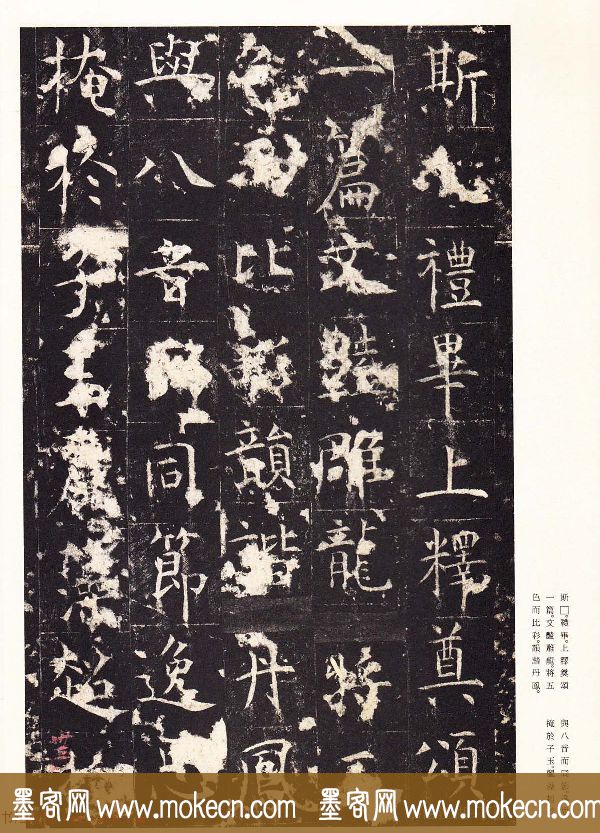 斯禮畢上釋奠頌
一篇文豔雕龍將五
色而比彩韻諧丹鳳
與八音而同節逸
掩於子玉麗藻超
斯□。禮畢。上釋奠頌
一篇。文豔雕龍。將五
色而比彩。韻諧丹鳳。
與八音而同節
掩於子玉。麗藻
墨客网 www.mokecn.com 墨客网 www.mokecn.com